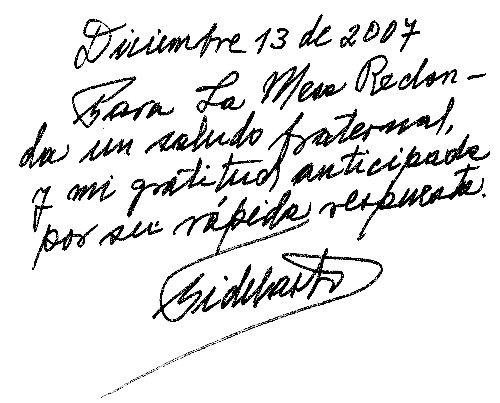 Diciembre 13 de 2007
Para La Mesa Redon-
da un saludo fraternal,
y mi gratitud anticipada
por su rápida respuesta.